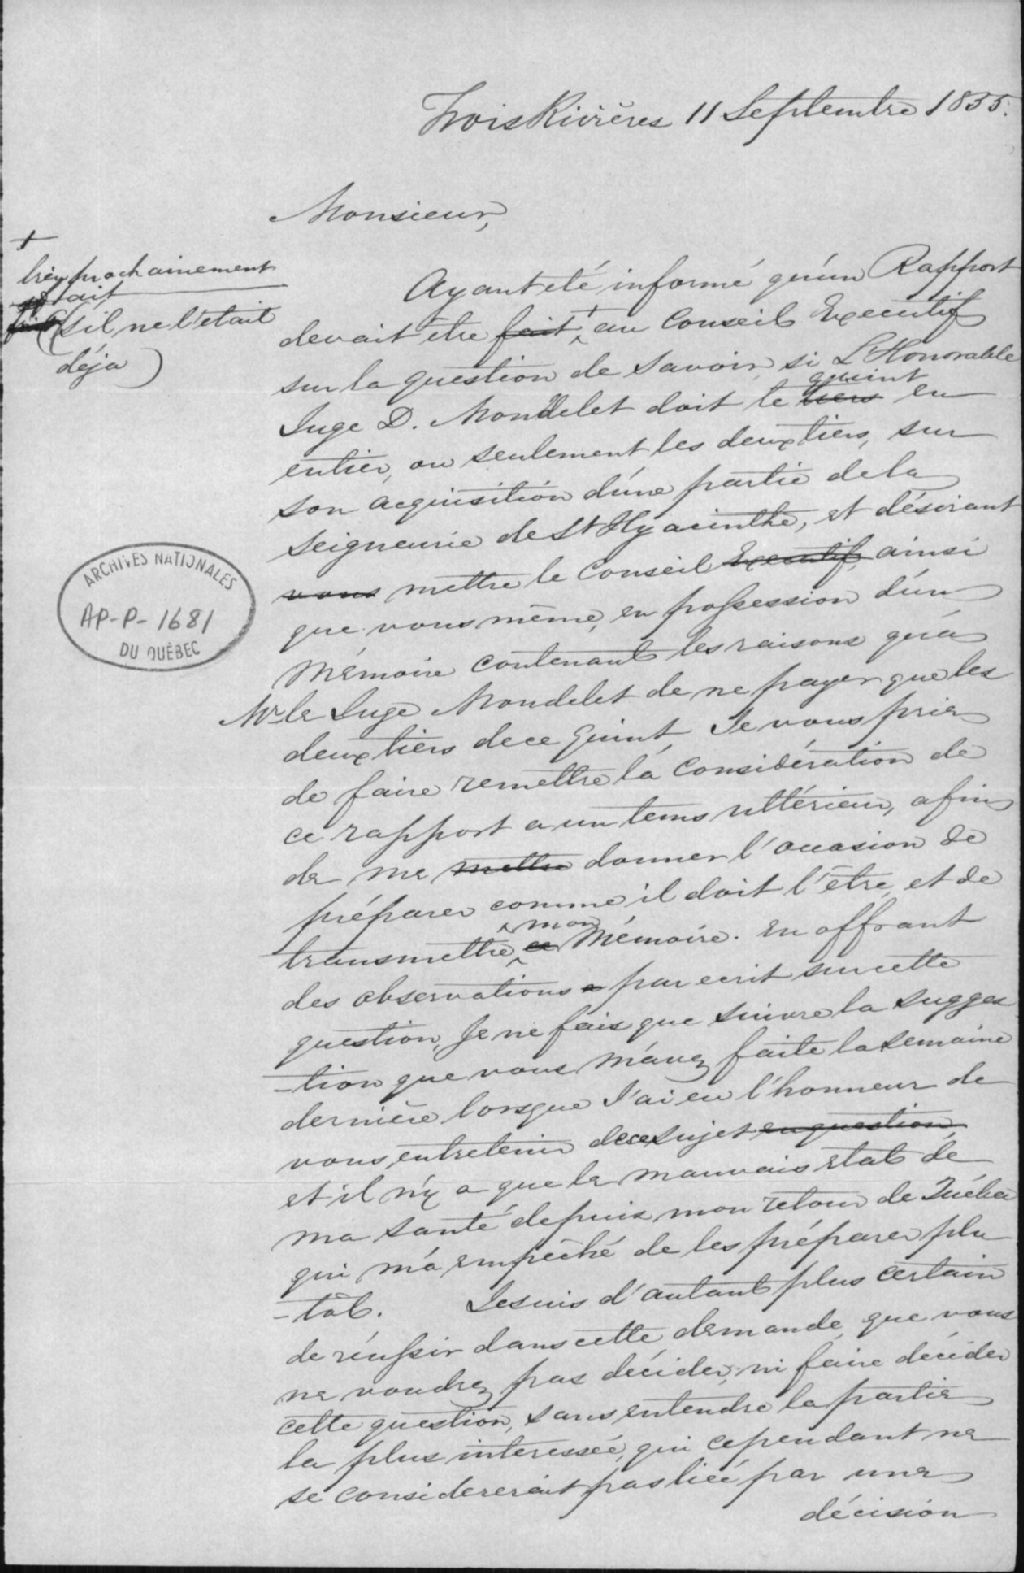 Trois Rivières 11 Septembre 1855.
Monsieur,
+
très prochainement
fait
(s'il ne l'etait
déja)
Ayant été informé qu'un Rapport
devait être fait + au Conseil Executif
sur la question de savoir, si L'Honorable
quint
Juge D. Mondelet doit le tiers en
entier, ou seulement les deux tiers, sur
son acquisition d'une partie de la
Seigneurie de St Hyacinthe, et désirant
vous mettre le Conseil Executif, ainsi
que vous même, en possession d'un
Mémoire contenant les raisons qu'a
Mr le Juge Mondelet de ne payer que les
deux tiers de ce quint, Je vous prie
de faire remettre la considération de
ce rapport a un tems ultérieur, afin
de me mettre donner l'occasion de
préparer comme il doit l'être, et de
mon
transmettre ce Mémoire. En offrant
des observations a par ecrit sur cette
question, Je ne fais que suivre la sugges
-tion que vous m'avez faite la semaine
dernière lorsque J'ai eu l'honneur de
vous entretenir de ce sujet en question,
et il n'y a que le mauvais etat de
ma santé depuis mon retour de Québec
qui m'a empêché de les préparer plu
-tôt. Je suis d'autant plus certain
de réussir dans cette demande, que vous
ne voudrez pas décider, ni faire décider
cette question, sans entendre la partie
la plus interessée, qui cependant ne
se considererait pas liée par une
décision
ARCHIVES NATIONALES
AP-P-1681
DU QUÉBEC